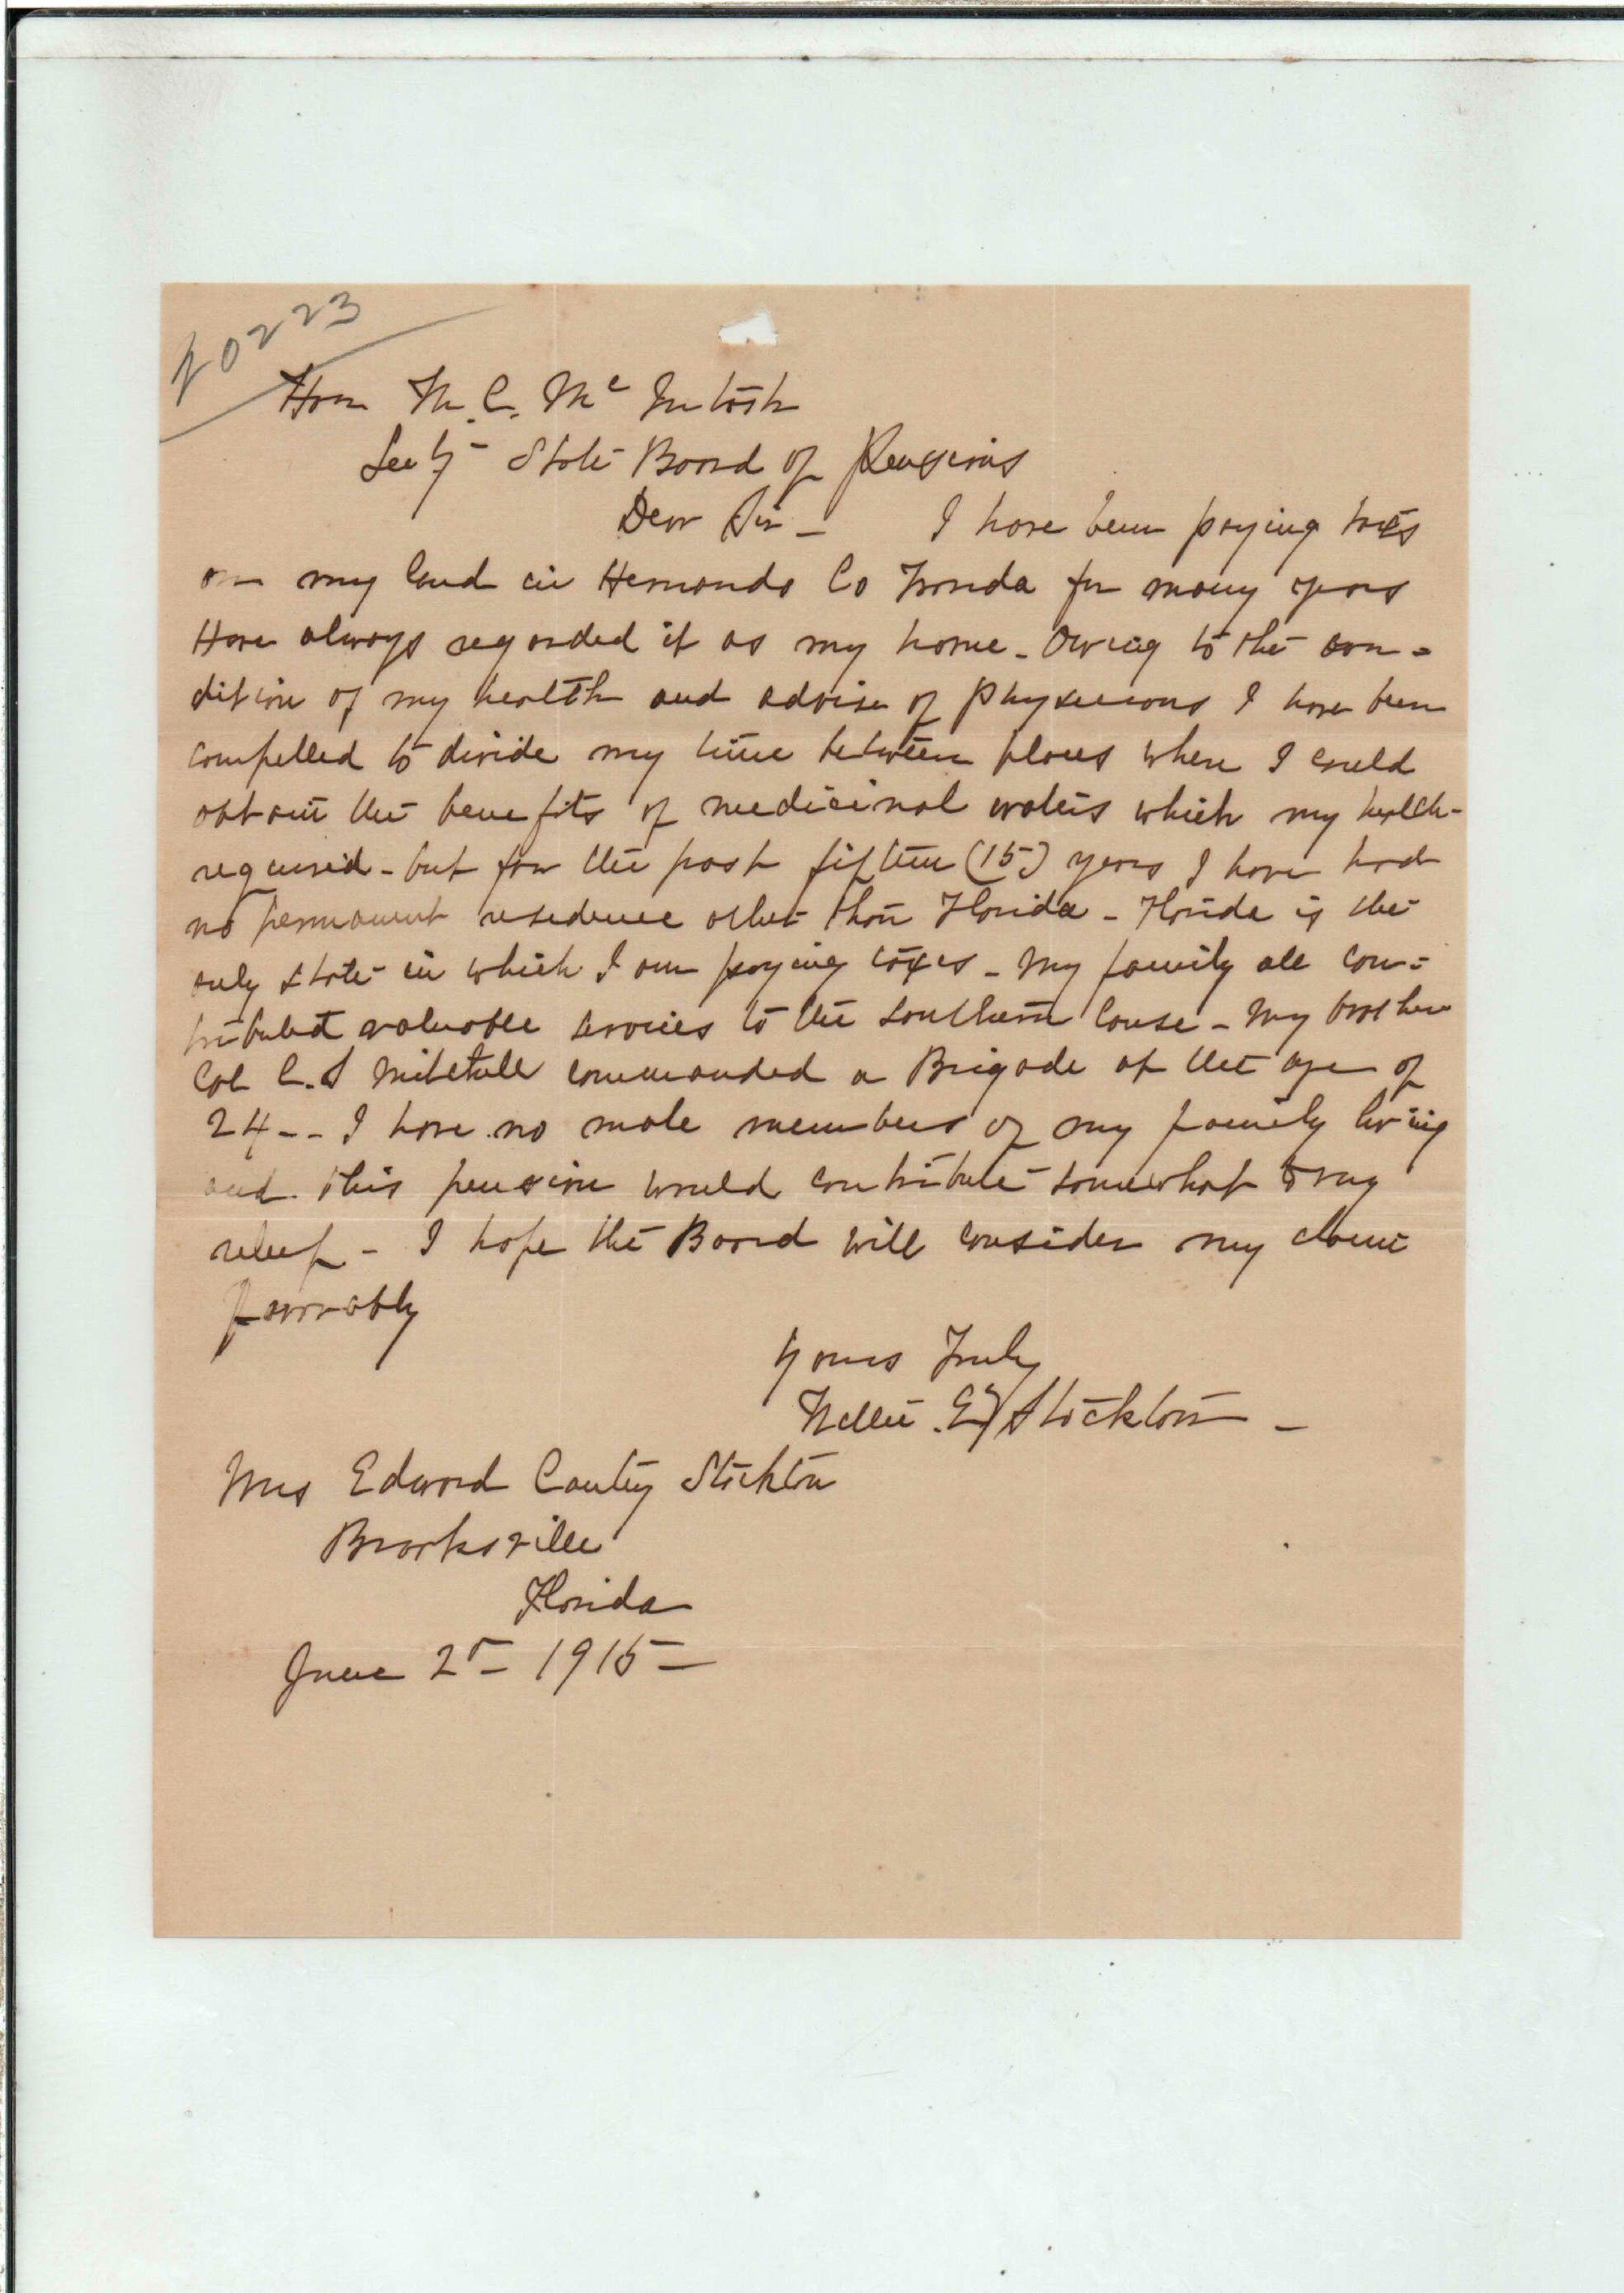 20223
Hon M. C. Mc Intosh
Secty - State Board of Pensions
Dear Sir - I have been paying taxes
on my land in Hernando Co Florida for many years
Have always regarded it as my home - Owing to the con =
dition of my health and advise of physicians I have been
compelled to divide my time between places where I could
obtain the benefits of medicinal waters which my health -
required - but for the past fifteen (15) years I have had
no permanent residence other than Florida - Florida is the
only state in which I am paying taxes - My family all con =
tributed valuable services to the Southern Cause - My brother
Col C. S Mitchell commanded a Brigade at the age of
24 - - I have no male members of my family living
and this pension would contribute somewhat to my
relief - I hope the Board will consider my claim
favorably
Yours Truly
Nellie Stockton -
Mrs Edward Cantey Stockton
Brooksville
Florida
June 1915 -